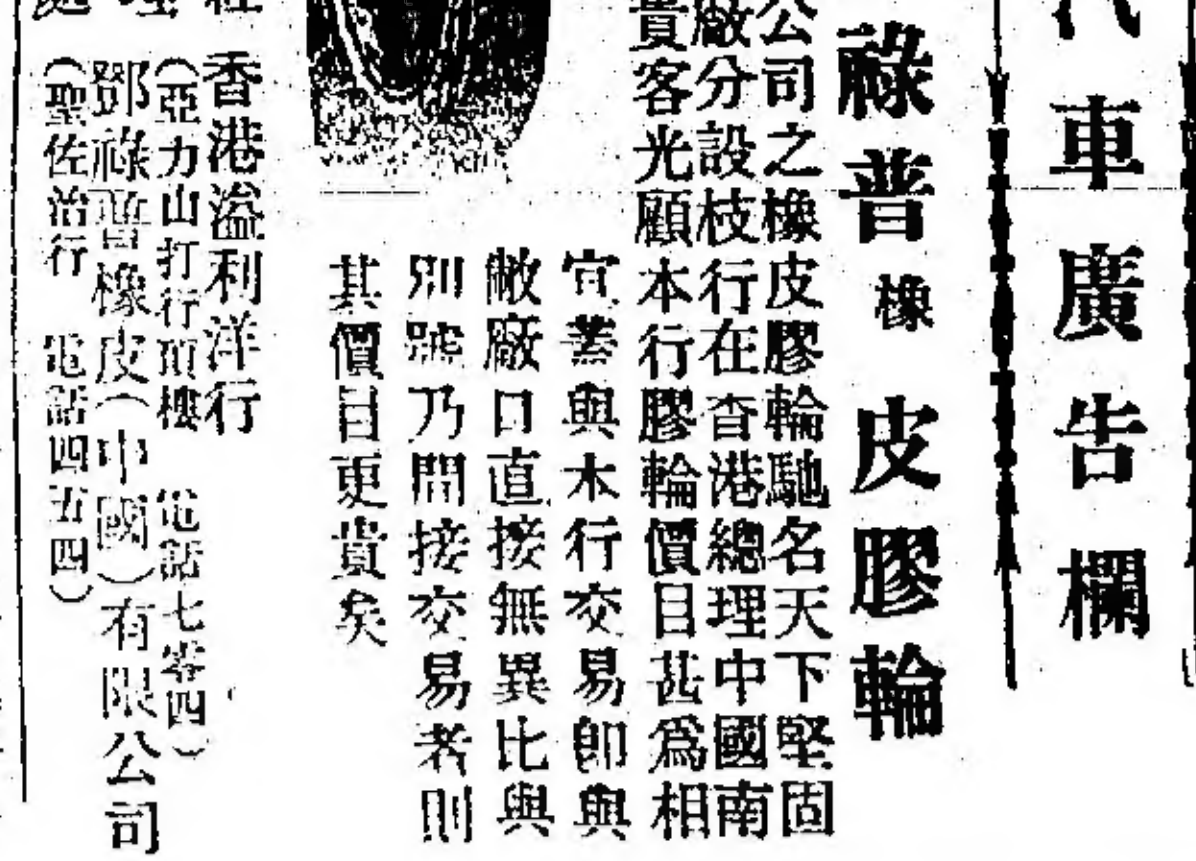 車廣告欄
祿普橡皮膠輪
公司之橡皮膠輪馳名天下堅固
廠分設枝行在香港總理中國南
貴客光顧本行膠輪價目甚為相
宜蓋與本行交易即與
敝廠口直接無異比與
別號乃間接交易者則
其價目更貴矣
香港溢利洋行
(亞力山打行頂樓 電話七零四)
鄧祿普橡皮(中國)有限公司
(聖佐治行 電話四五四)